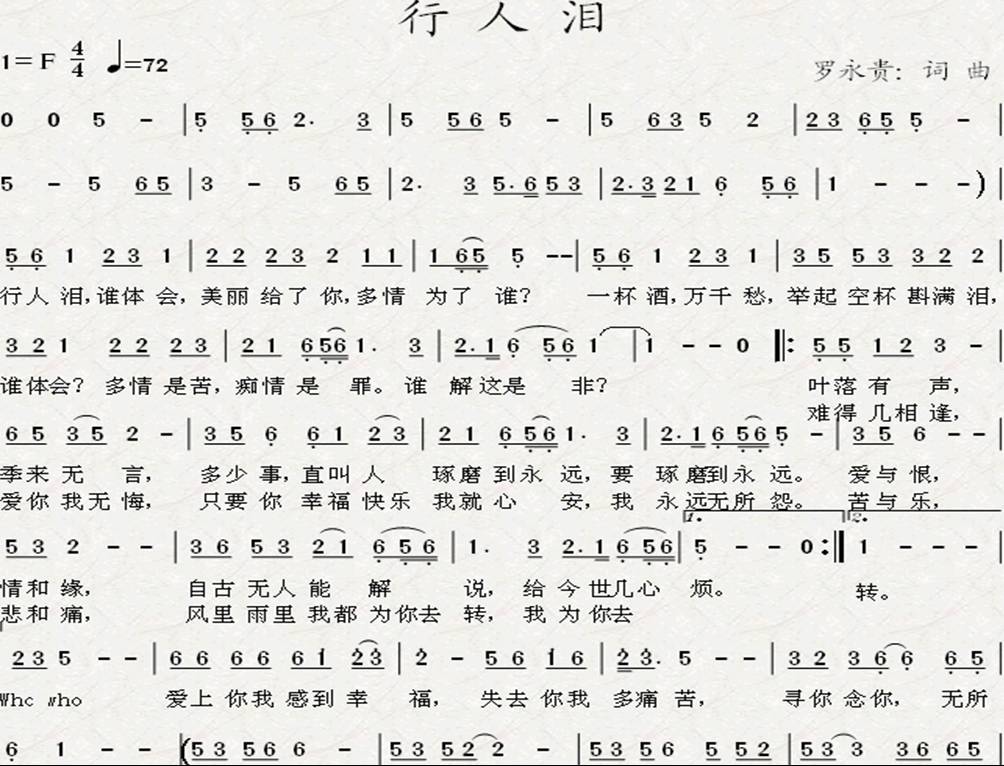 行人泪
1=F 4/4 ♩=72
罗永贵：词 曲
0 0 5 - | 5 5 6 2· 3 | 5 5 6 5 - | 5 6 3 5 2 | 2 3 6 5 5 - |
5 - 5 6 5 | 3 - 5 6 5 | 2· 3 5· 6 5 3 | 2· 3 2 1 6 5 6 | 1 - - - )
5 6 1 2 3 1 | 2 2 2 3 2 1 1 | 1 6 5 5 -- | 5 6 1 2 3 1 | 3 5 5 3 3 2 2 |
行人 泪,谁体 会,美丽 给了 你,多情 为了 谁? 一杯 酒,万千 愁,举起 空杯 斟满 泪,
3 2 1 2 2 2 3 | 2 1 6 5 6 1· 3 | 2· 1 6 5 6 1 | 1 - - 0 ‖: 5 5 1 2 3 - |
谁体会? 多情 是苦,痴情 是 罪。谁 解这是 非? 叶落 有 声,
难得 几相 逢,
6 5 3 5 2 - | 3 5 6 6 1 2 3 | 2 1 6 5 6 1· 3 | 2· 1 6 5 6 5 - | 3 5 6 - - |
季来 无 言, 多少 事,直叫 人 琢磨 到永 远,要 琢磨到永 远。 爱与 恨,
爱你 我无 悔, 只要 你 幸福 快乐 我就 心 安,我 永远无所 怨。 苦与 乐,
5 3 2 - - | 3 6 5 3 2 1 6 5 6 | 1· 3 2· 1 6 5 6 | 1. 5 - - 0 :‖ 2. 1 - - - |
情和 缘, 自古 无人 能 解 说, 给 今 世几心 烦。 转。
悲和 痛, 风里 雨里 我都 为你去 转, 我 为 你去
2 3 5 - - | 6 6 6 6 6 1 2 3 | 2 - 5 6 1 6 | 2 3· 5 - - | 3 2 3 6 6 6 5 |
Who who 爱上 你我 感到 幸 福, 失去 你我 多痛 苦, 寻你 念你, 无所
6 1 - - | (5 3 5 6 6 - | 5 3 5 2 2 - | 5 3 5 6 5 5 2 | 5 3 3 3 6 6 5 |